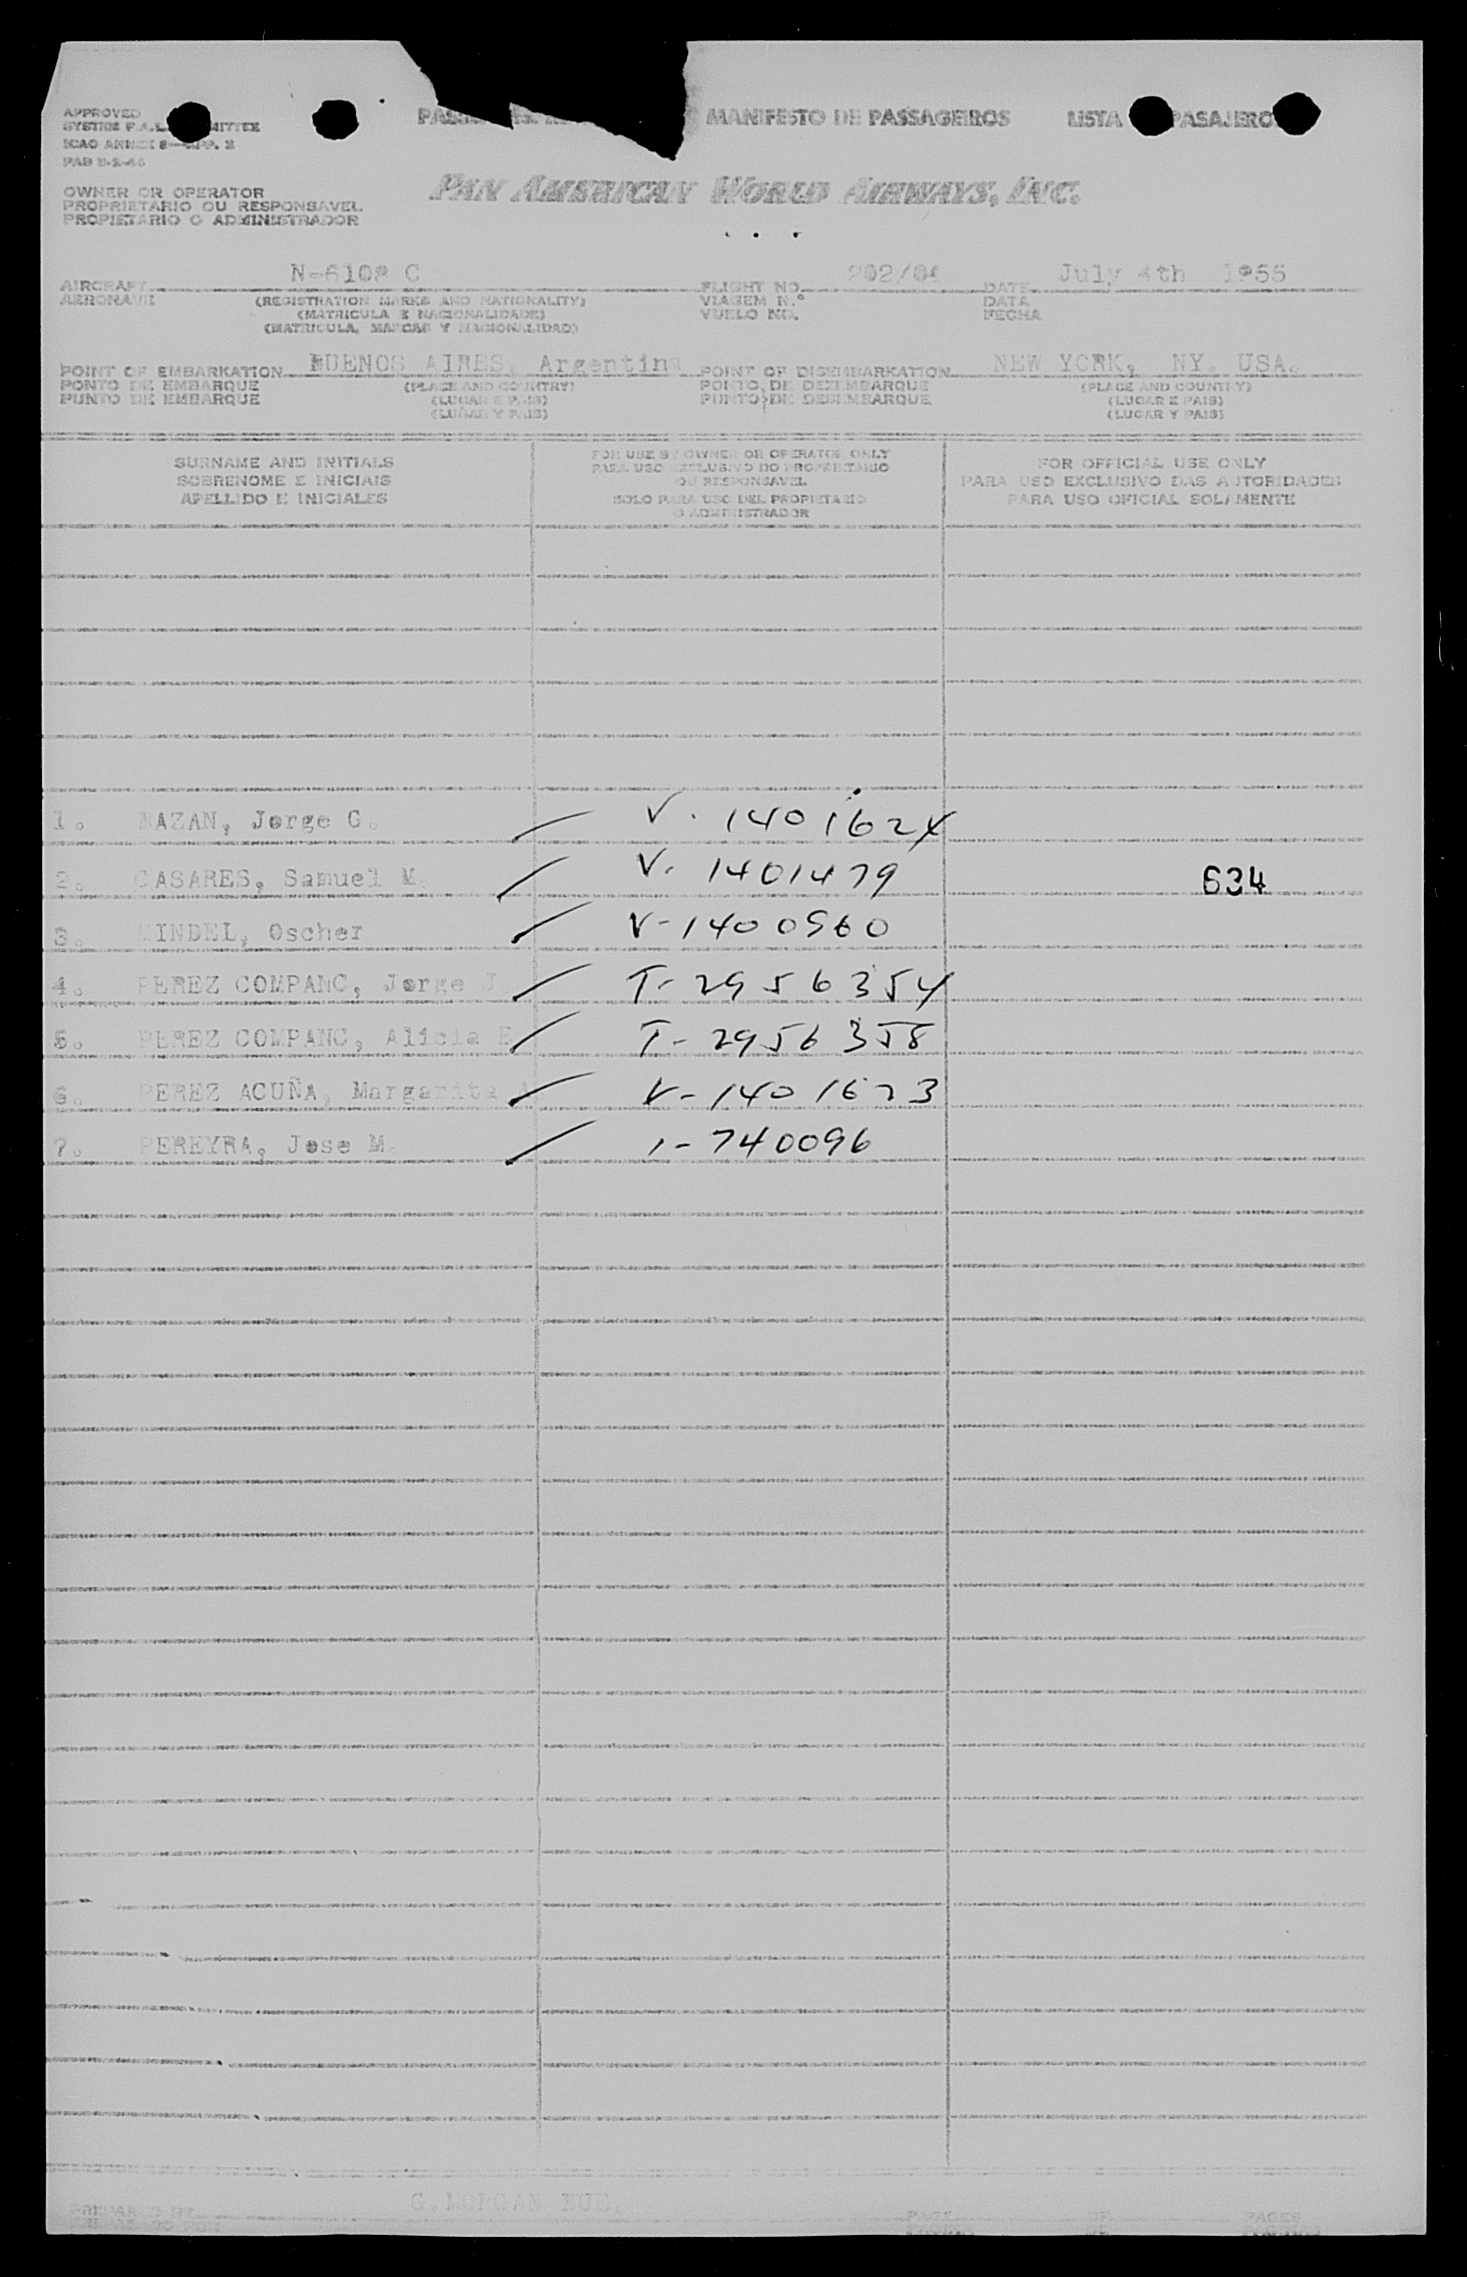 APPROVED
ICAO ANNEX 9—APP. 2
MANIFESTO DE PASSAGEIROS LISTA PASAJERO
OWNER OR OPERATOR
PROPRIETARIO OU RESPONSAVEL
PROPIETARIO O ADMINISTRADOR
PAN AMERICAN WORLD AIRWAYS, INC.
AIRCRAFT FLIGHT NO. 202/04 DATE July 4th 1955
AERONAVE (REGISTRATION MARKS AND NATIONALITY) VIAGEM N.° DATA
(MATRICULA E NACIONALIDADE) VUELO NO. FECHA
(MATRICULA, MARCAS Y NACIONALIDAD)
POINT OF EMBARKATION BUENOS AIRES, Argentina POINT OF DISEMBARKATION NEW YORK, NY. USA.
PONTO DE EMBARQUE (PLACE AND COUNTRY) PONTO DE DESEMBARQUE (PLACE AND COUNTRY)
PUNTO DE EMBARQUE (LUGAR E PAIS) PUNTO DE DESEMBARQUE (LUGAR E PAIS)
(LUGAR Y PAIS) (LUGAR Y PAIS)
SURNAME AND INITIALS
SOBRENOME E INICIAIS
APELLIDO E INICIALES
FOR USE BY OWNER OR OPERATOR ONLY
PARA USO EXCLUSIVO DO PROPRIETARIO
OU RESPONSAVEL
SOLO PARA USO DEL PROPIETARIO
O ADMINISTRADOR
FOR OFFICIAL USE ONLY
PARA USO EXCLUSIVO DAS AUTORIDADES
PARA USO OFICIAL SOLAMENTE
1. Jorge G. V. 1401624
2. CASARES, Samuel M. V. 1401479 634
3. Oscher V-1400560
4. PEREZ COMPANC, Jorge J. T-2956354
5. PEREZ COMPANC, Alicia T-2956358
6. PEREZ ACUÑA, Margarita A V-1401623
7. PEREYRA, Jose M. 1-740096
G. MORGAN BUE.
PAGE OF PAGES